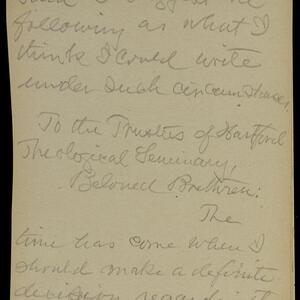 following as what I
think I could write
under such circumstances.
To the Trustees of Hartford
Theological Seminary,
Beloved Brethren:
The
time has come when I
should make a definite
decision regarding